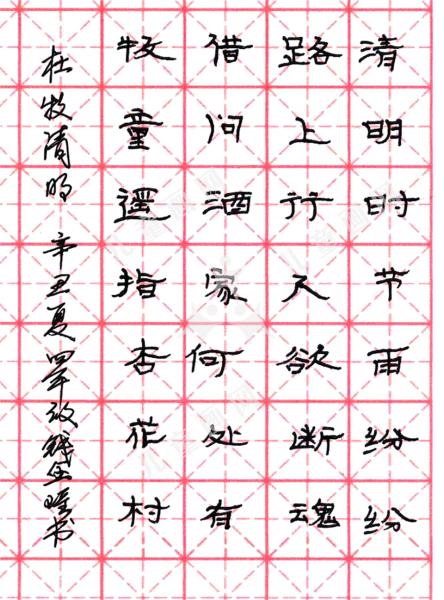 清明时节雨纷纷
路上行人欲断魂
借问酒家何处有
牧童遥指杏花村
杜牧清明 辛丑夏
书